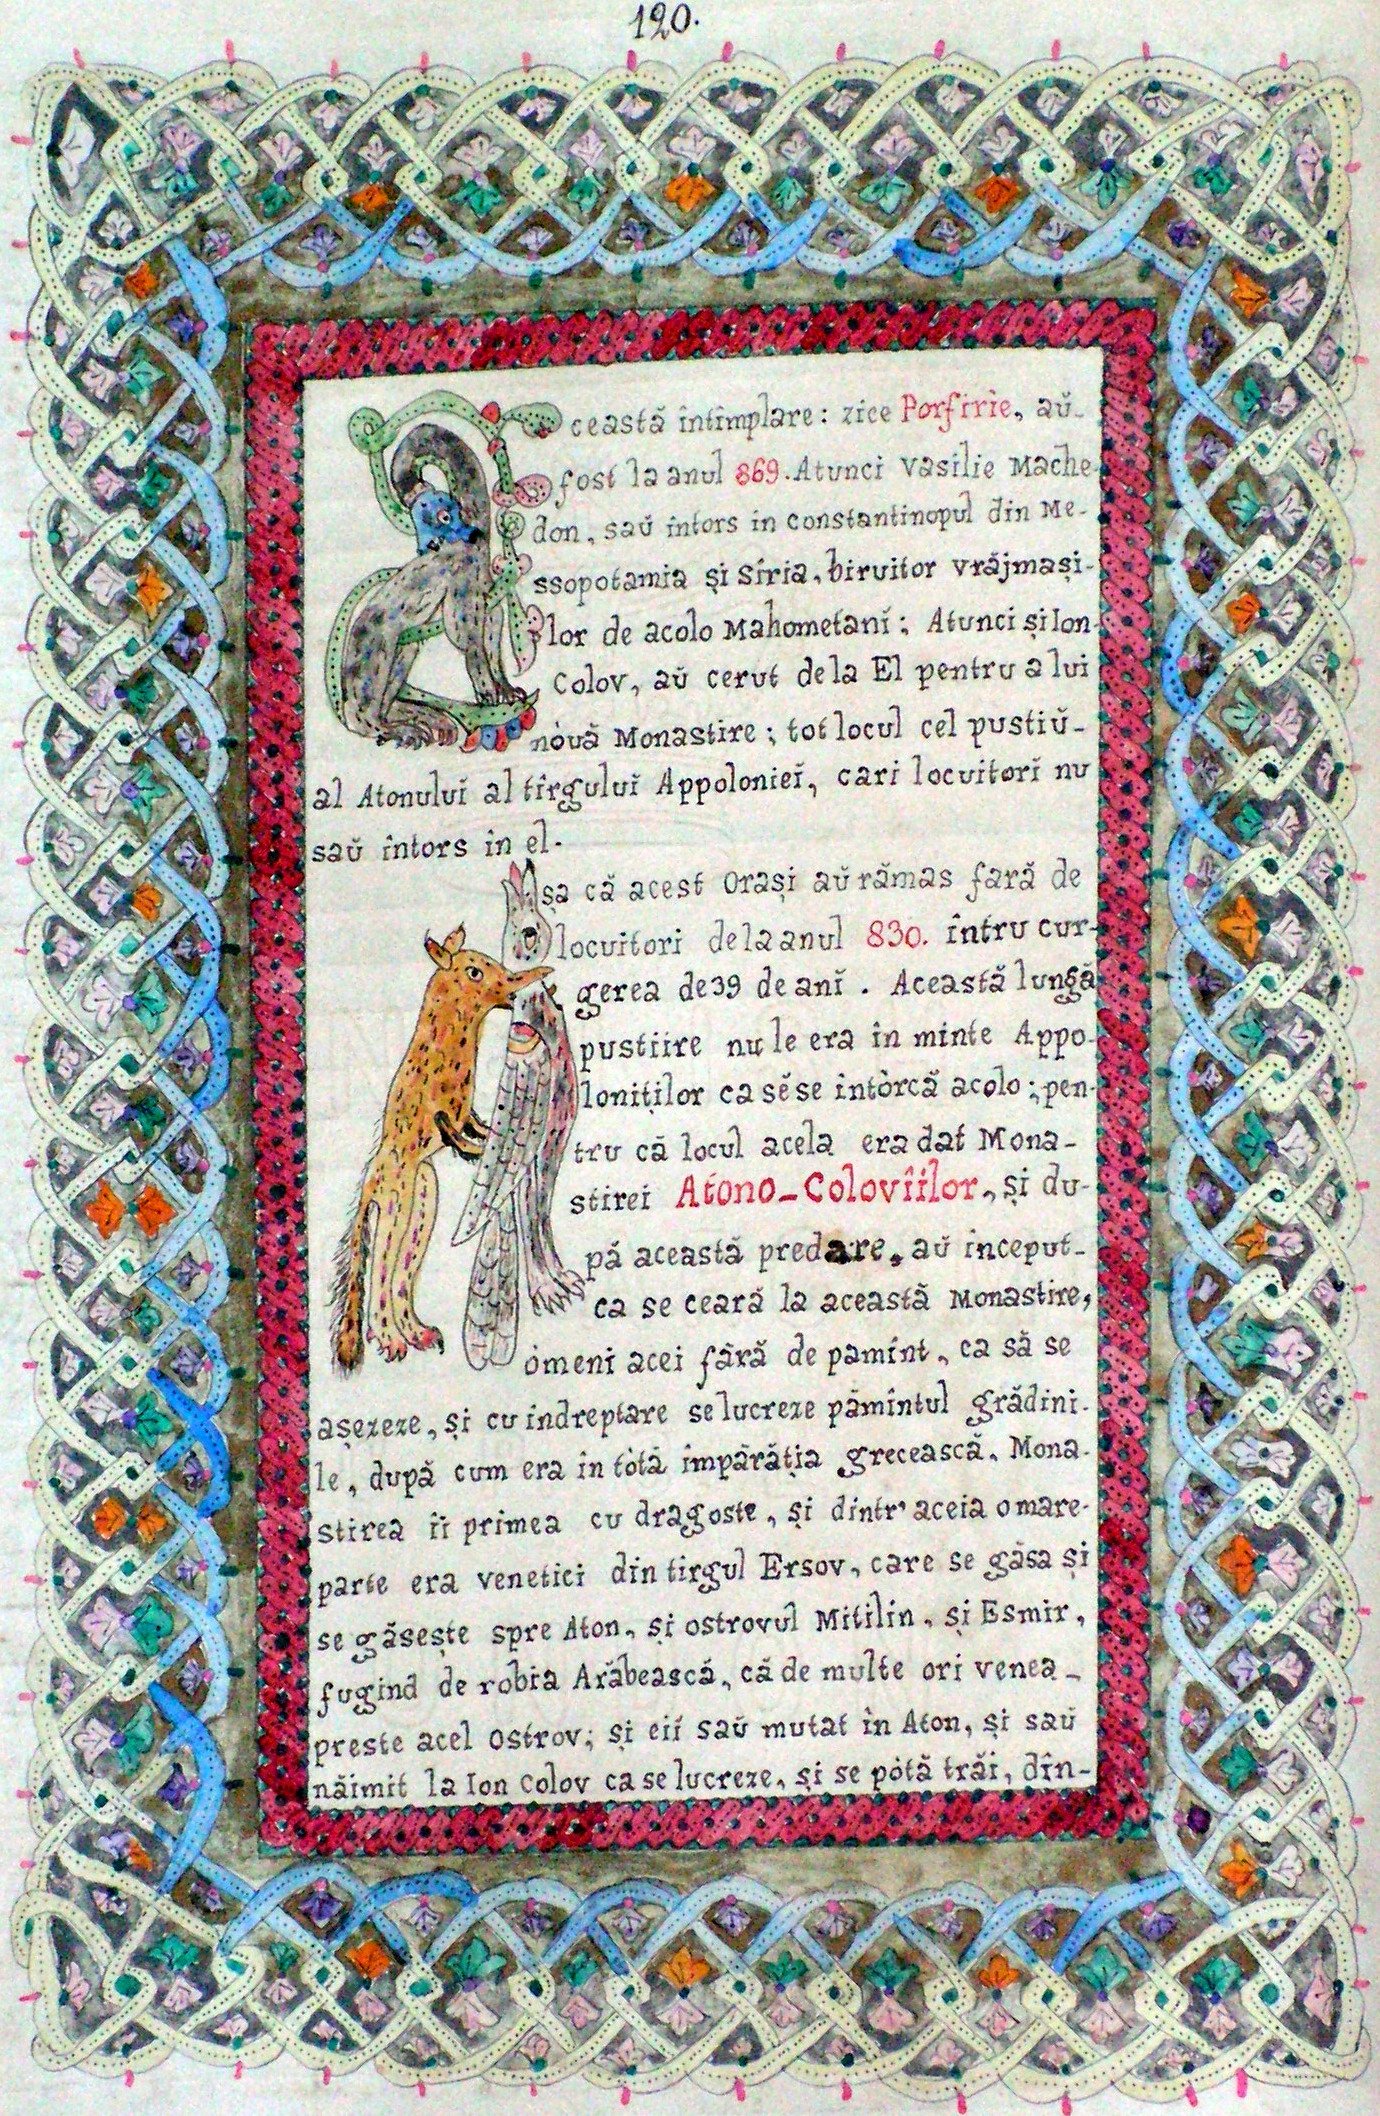 120.
Această întîmplare: zice Porfirie, aŭ-
fost la anul 869. Atunci Vasilie Mache-
don, saŭ întors în Constantinopul din Me-
ssopotamia și Siria, biruitor vrăjmași-
lor de acolo Mahometanĭ; Atunci și Ion
Colov, aŭ cerut de la El pentru a lui
nòuă Monastire; tot locul cel pustiŭ-
al Atonuluĭ al tîrguluĭ Appolonieĭ, cari locuitorĭ nu
saŭ întors în el.
Așa că acest Orași aŭ rămas fară de
locuitori de la anul 830. întru cur-
gerea de 39 de anĭ. Această lungă
pustiire nu le era în minte Appo-
loniților ca sĕ se intòrcă acolo; pen-
tru că locul acela era dat Mona-
stirei Atono-Coloviĭlor, și du-
pă această predare, aŭ inceput-
ca se ceară la această Monastire,
òmeni acei fără de pamînt, ca să se
așezeze, și cu indreptare se lucreze pămîntul grădini-
le, după cum era în tòtă împărăția grecească. Mona-
stirea îi primea cu dragoste, și dintr' aceia o mare-
parte era venetici din tirgul Ersov, care se găsa și
se găsește spre Aton, și ostrovul Mitilin, și Esmir,
fugind de robia Arăbească, că de multe ori venea-
preste acel ostrov; și eiĭ saŭ mutat în Aton, și saŭ
năimit la Ion Colov ca se lucreze, și se pòtă trăi, dîn-